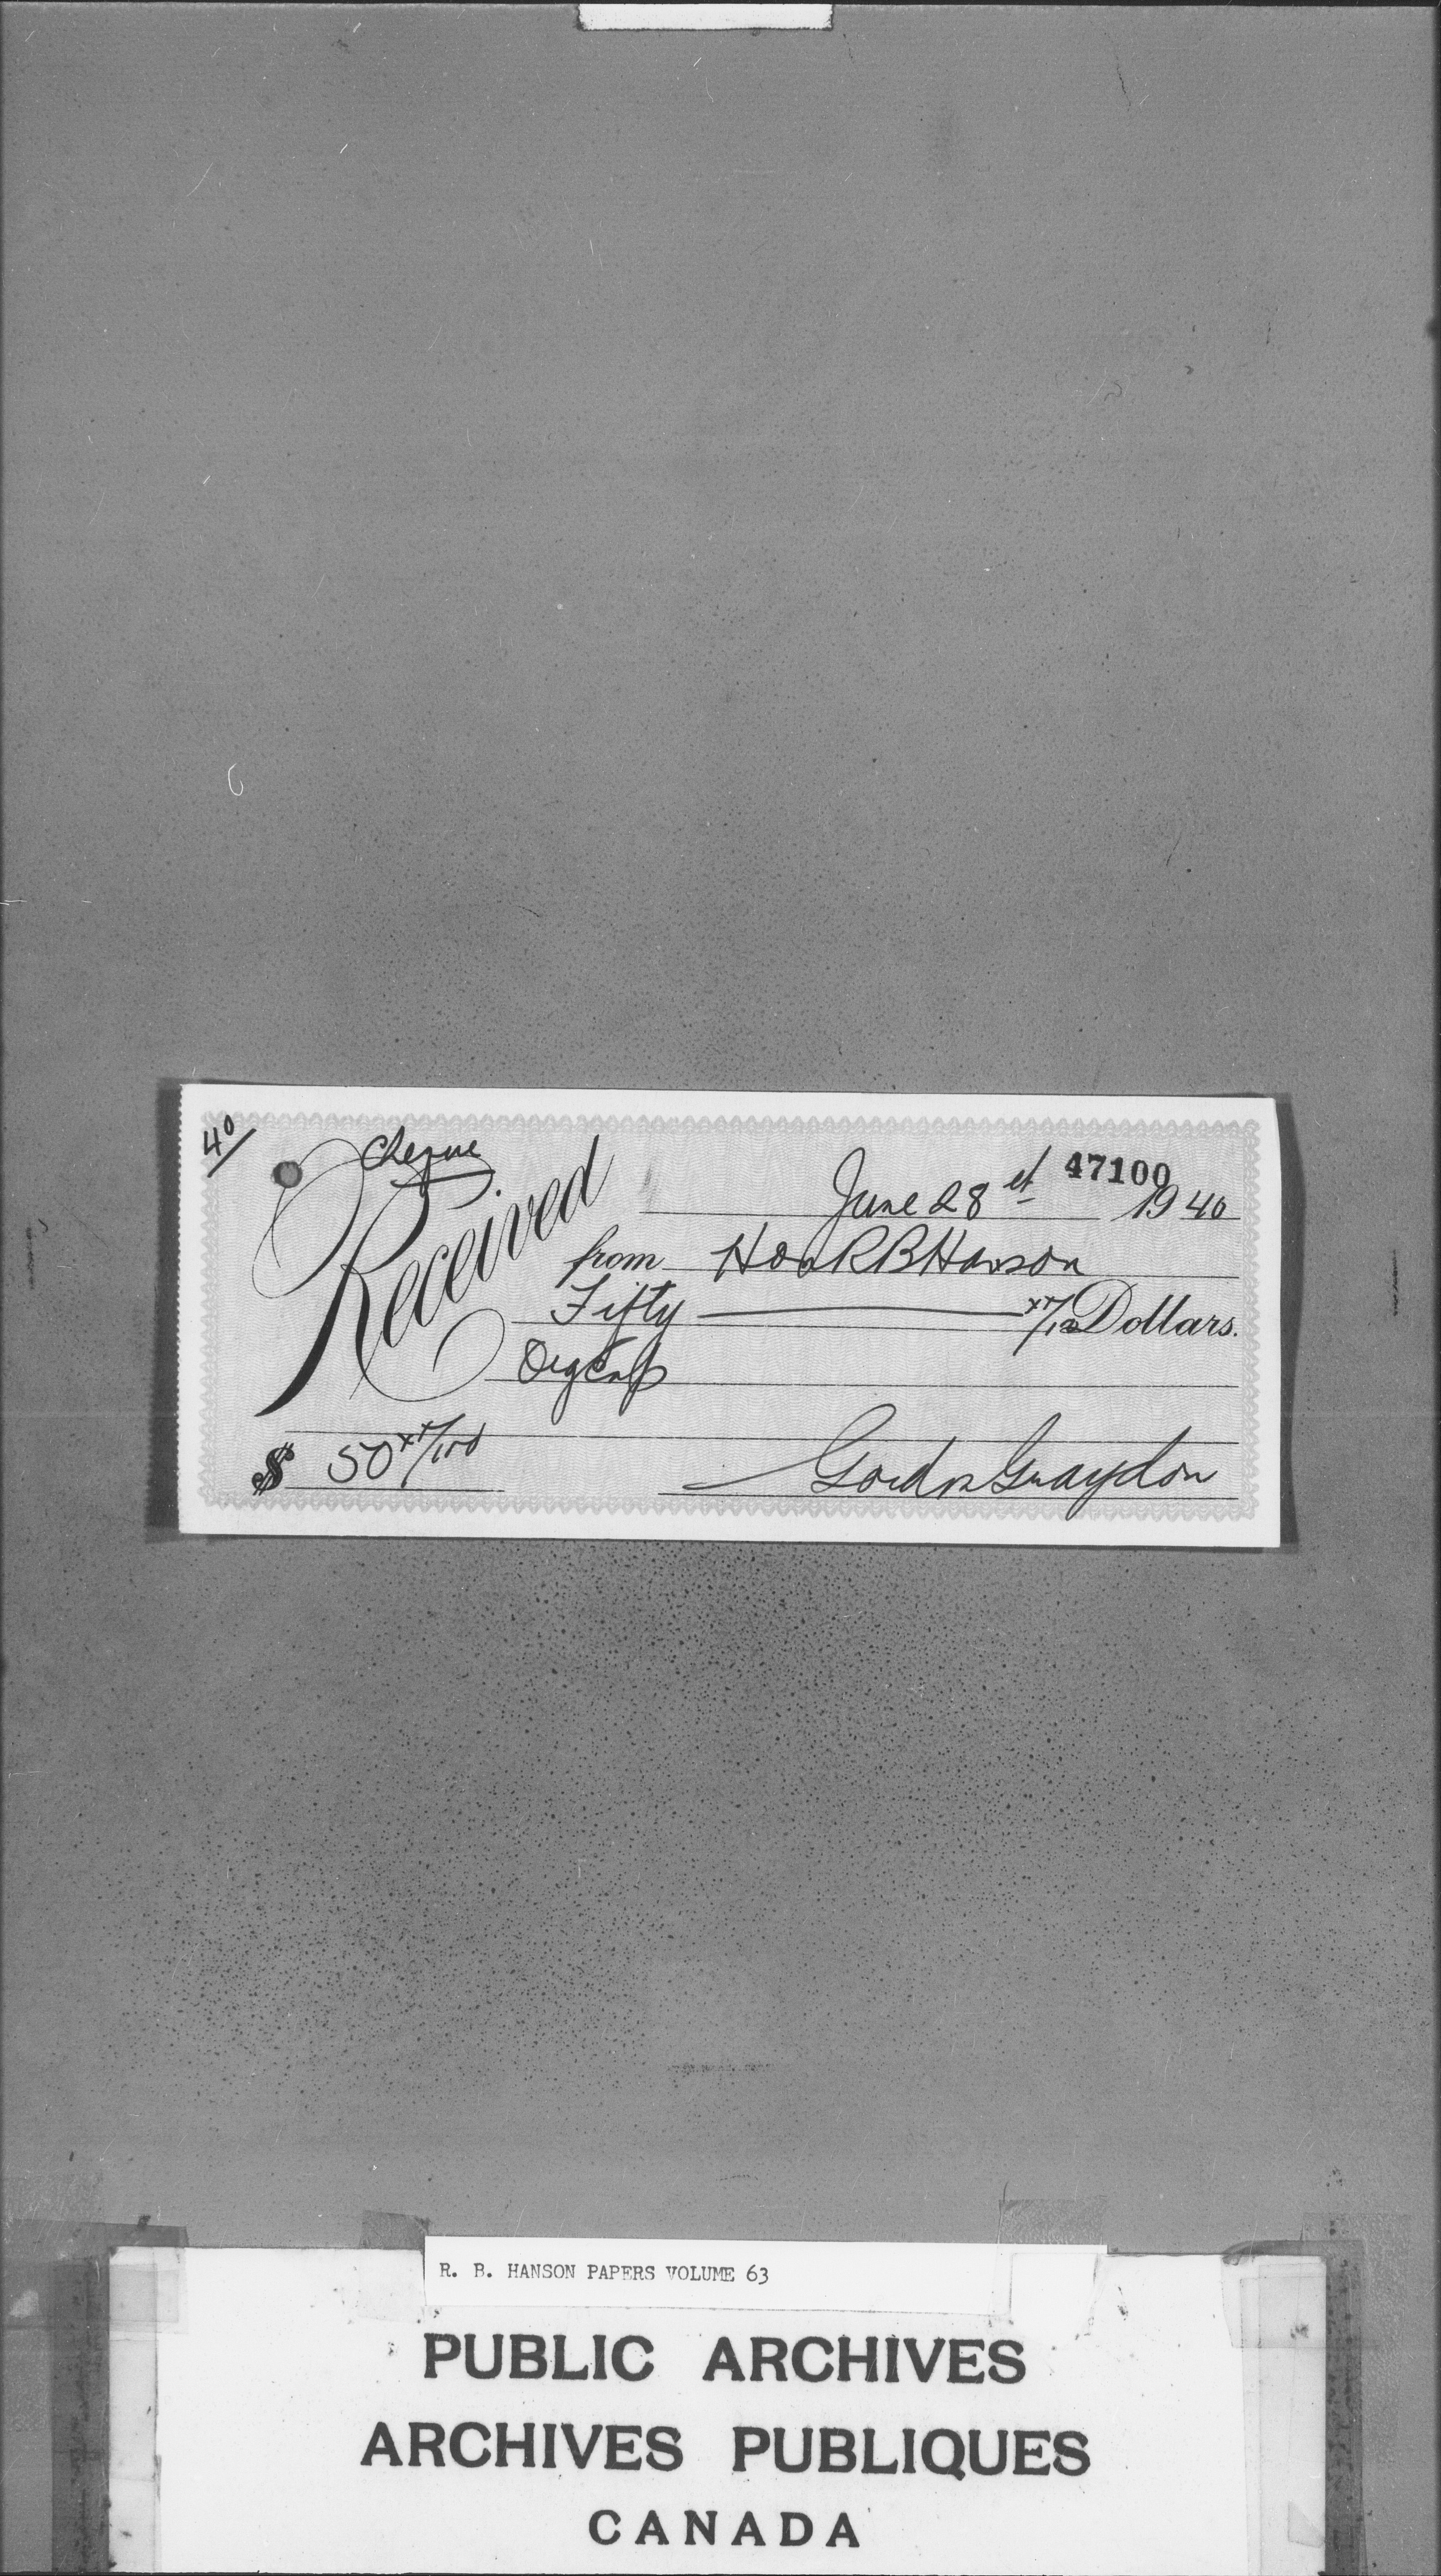 40/
Cheque
47100
June 28 st 1940
Received
from Hon R B Hanson
Fifty xx/100 Dollars.
$ 50 xx/100
Gordon Graydon
R. B. HANSON PAPERS VOLUME 63
PUBLIC ARCHIVES
ARCHIVES PUBLIQUES
CANADA